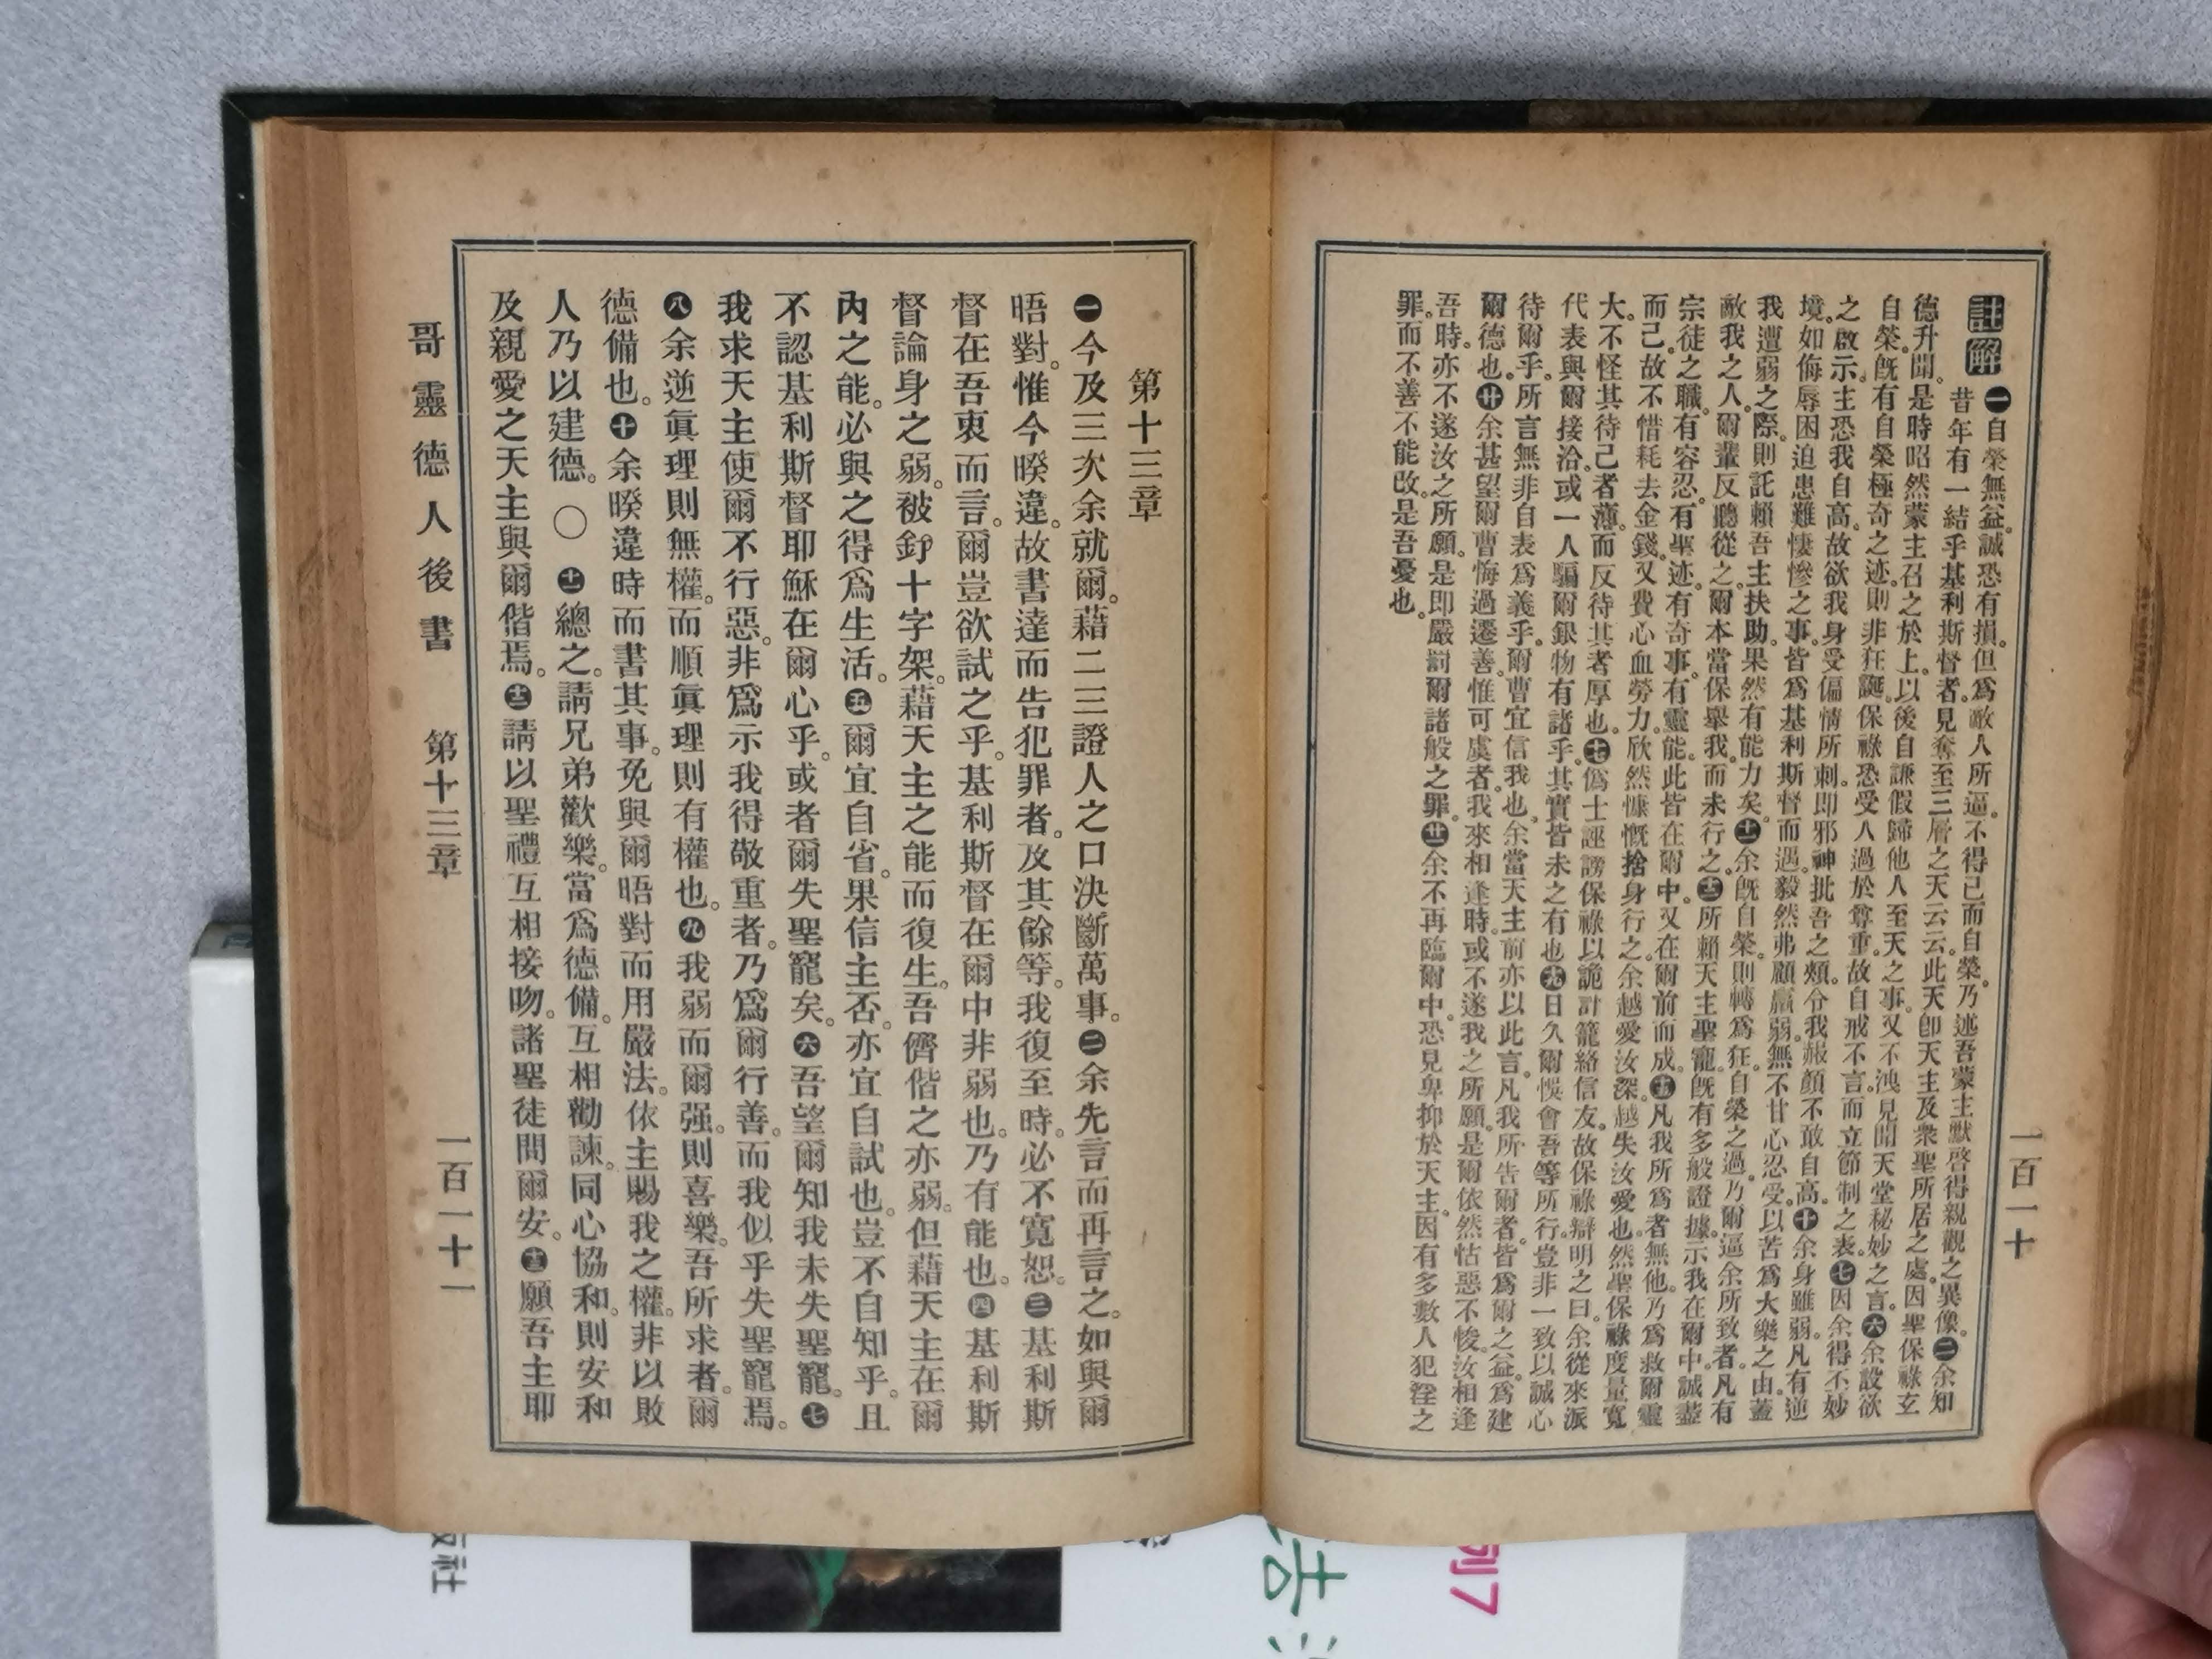 註解
一自榮無益。誠恐有損。但爲敵人所逼。不得已而自榮。乃述吾蒙主默啓得親觀之異像。二余知
昔年有一結乎基利斯督者。見奪至三層之天云云。此天卽天主及衆聖所居之處。因聖保祿玄
德升聞。是時昭然蒙主召之於上。以後自謙假歸他人至天之事。又不洩見聞天堂秘妙之言。六余設欲
自榮。旣有自榮極奇之迹。則非狂誕。保祿恐受人過於尊重。故自戒不言。而立節制之表。七因余得不妙
之啟示。主恐我自高。故欲我身受偏情所刺。即邪神批吾之頰。令我赧顏不敢自高。十余身雖弱。凡有逆
境。如侮辱困迫患難悽慘之事。皆爲基利斯督而遇。毅然弗顧羸弱。無不甘心忍受。以苦爲大樂之由。蓋
我遭弱之際。則託賴吾主扶助。果然有能力矣。十一余旣自榮。則轉爲狂。自榮之過。乃爾逼余所致者。凡有
敵我之人。爾輩反聽從之。爾本當保舉我。而未行之。十二所賴天主聖寵。旣有多般證據。示我在爾中。誠盡
宗徒之職。有容忍。有聖迹。有奇事。有靈能。此皆在爾中。又在爾前而成。十五凡我所爲者無他。乃爲救爾靈
而己。故不惜耗去金錢。又費心血勞力。欣然慷慨捨身行之。余越愛汝深。越失汝愛也。然聖保祿度量寬
大。不怪其待己者薄。而反待其者厚也。十七僞士誣謗保祿以詭計籠絡信友。故保祿辯明之曰。余從來派
代表與爾接洽。或一人騙爾銀物有諸乎。其實皆未之有也。十九日久爾悞會吾等所行。豈非一致以誠心
待爾乎。所言無非自表爲義乎。爾曹宜信我也。余當天主前亦以此言。凡我所告爾者。皆爲爾之益。爲建
爾德也。廿余甚望爾曹悔過遷善。惟可虞者。我來相逢時。或不遂我之所願。是爾依然怙惡不悛。汝相逢
吾時。亦不遂汝之所願。是即嚴罰爾諸般之罪。廿一余不再臨爾中。恐見卑抑於天主。因有多數人犯淫之
罪。而不善不能改。是吾憂也。
二百一十
第十三章
一今及三次余就爾。藉二三證人之口決斷萬事。二余先言而再言之。如與爾
晤對。惟今暌違。故書達而告犯罪者。及其餘等。我復至時。必不寬恕。三基利斯
督在吾衷而言。爾豈欲試之乎。基利斯督在爾中非弱也。乃有能也。四基利斯
督論身之弱。被釘十字架。藉天主之能而復生。吾儕偕之亦弱。但藉天主在爾
內之能。必與之得爲生活。五爾宜自省。果信主否。亦宜自試也。豈不自知乎。且
不認基利斯督耶穌在爾心乎。或者爾失聖寵矣。六吾望爾知我未失聖寵。七
我求天主使爾不行惡。非爲示我得敬重者。乃爲爾行善。而我似乎失聖寵焉。
八余逆眞理則無權。而順眞理則有權也。九我弱而爾强。則喜樂。吾所求者。爾
德備也。十余暌違時而書其事。免與爾晤對而用嚴法。依主賜我之權。非以敗
人乃以建德。〇十一總之。請兄弟歡樂。當爲德備。互相勸諫。同心協和。則安和
及親愛之天主與爾偕焉。十二請以聖禮互相接吻。諸聖徒問爾安。十三願吾主耶
哥靈德人後書 第十三章 二百一十一
列7
版社